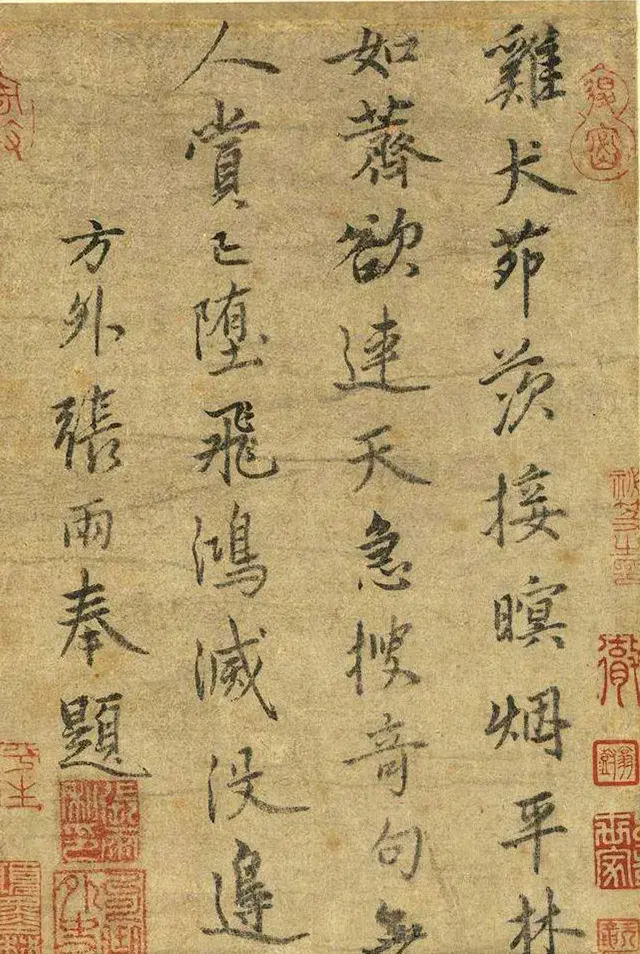 雞犬茆茨接暝烟平林
如薺欲連天急搜奇句無
人賞已墮飛鴻滅没邊
方外張雨奉題